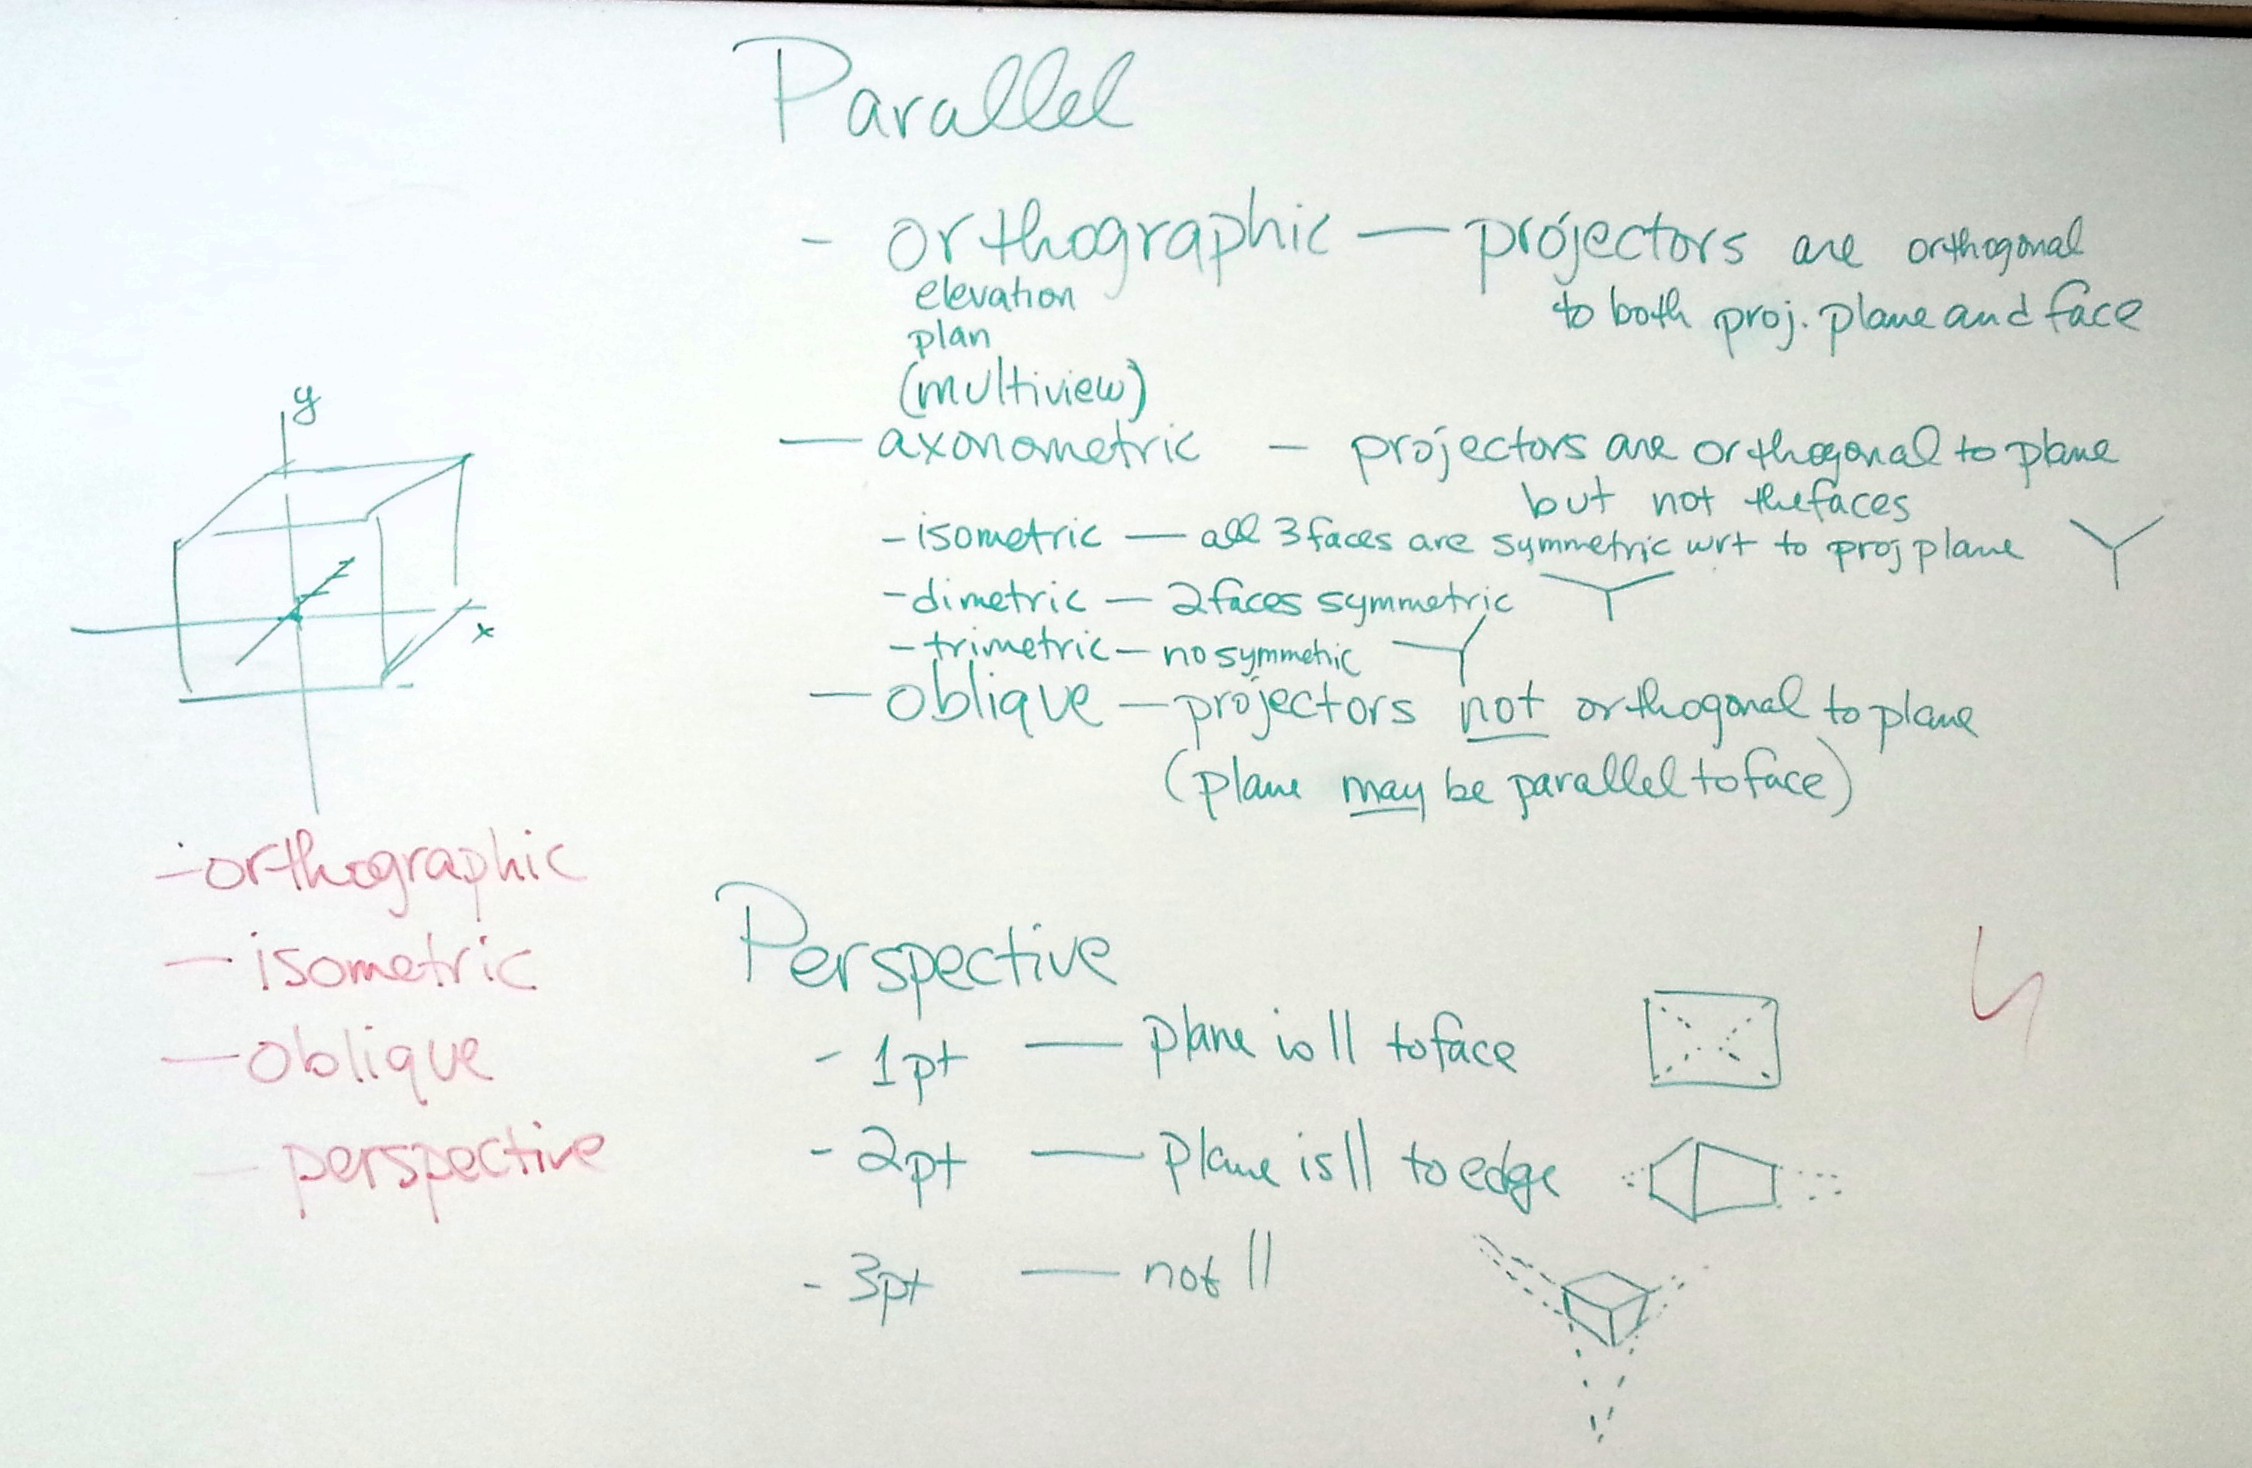 Parallel
- orthographic — projectors are orthogonal
to both proj. plane and face
elevation
plan
(multiview)
— axonometric - projectors are orthogonal to plane
but not the faces
- isometric — all 3 faces are symmetric wrt to proj plane
- dimetric — 2 faces symmetric
- trimetric — no symmetric
— oblique — projectors not orthogonal to plane
(plane may be parallel to face)
y
x
- orthographic
- isometric
- oblique
- perspective
Perspective
- 1pt — plane is || to face
- 2pt — plane is || to edge
- 3pt — not ||